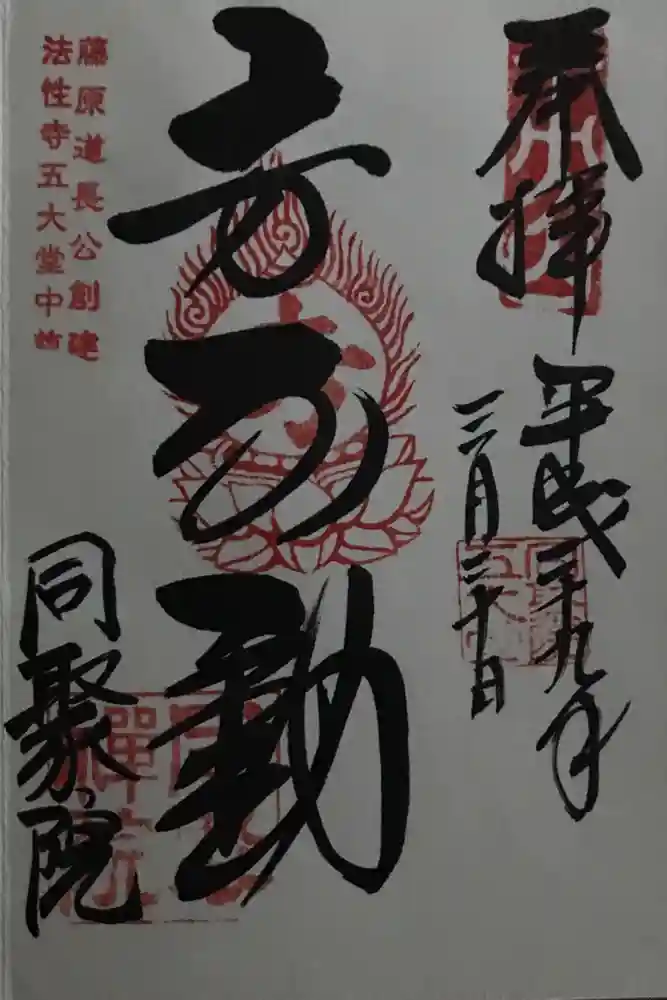 奉拝
平成二十九年
三月三十日
不動
藤原道長公創建
法性寺五大堂中
同聚院